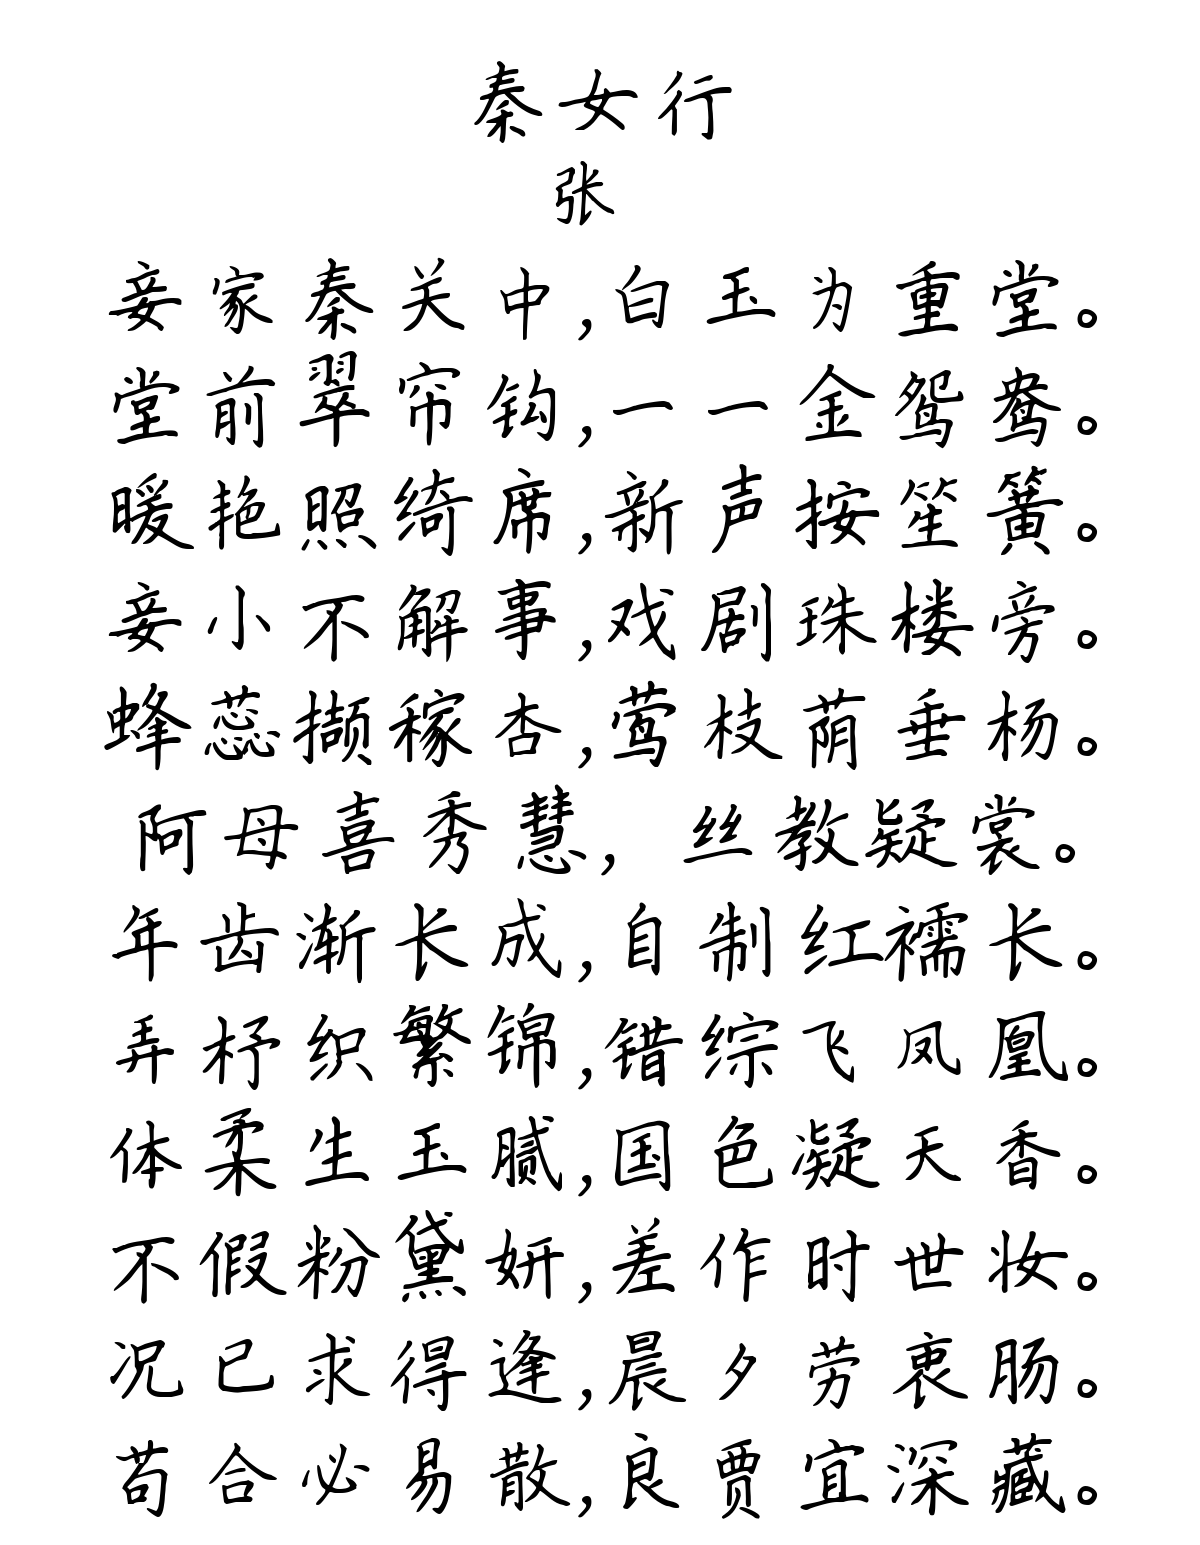 秦女行
张
妾家秦关中,白玉为重堂。
堂前翠帘钩,一一金鸳鸯。
暖艳照绮席,新声按笙簧。
妾小不解事,戏剧珠楼旁。
蜂蕊撷稼杏,莺枝荫垂杨。
阿母喜秀慧,丝教疑裳。
年齿渐长成,自制红襦长。
弄杼织繁锦,错综飞凤凰。
体柔生玉腻,国色凝天香。
不假粉黛妍,差作时世妆。
况已求得逢,晨夕劳衷肠。
苟合必易散,良贾宜深藏。